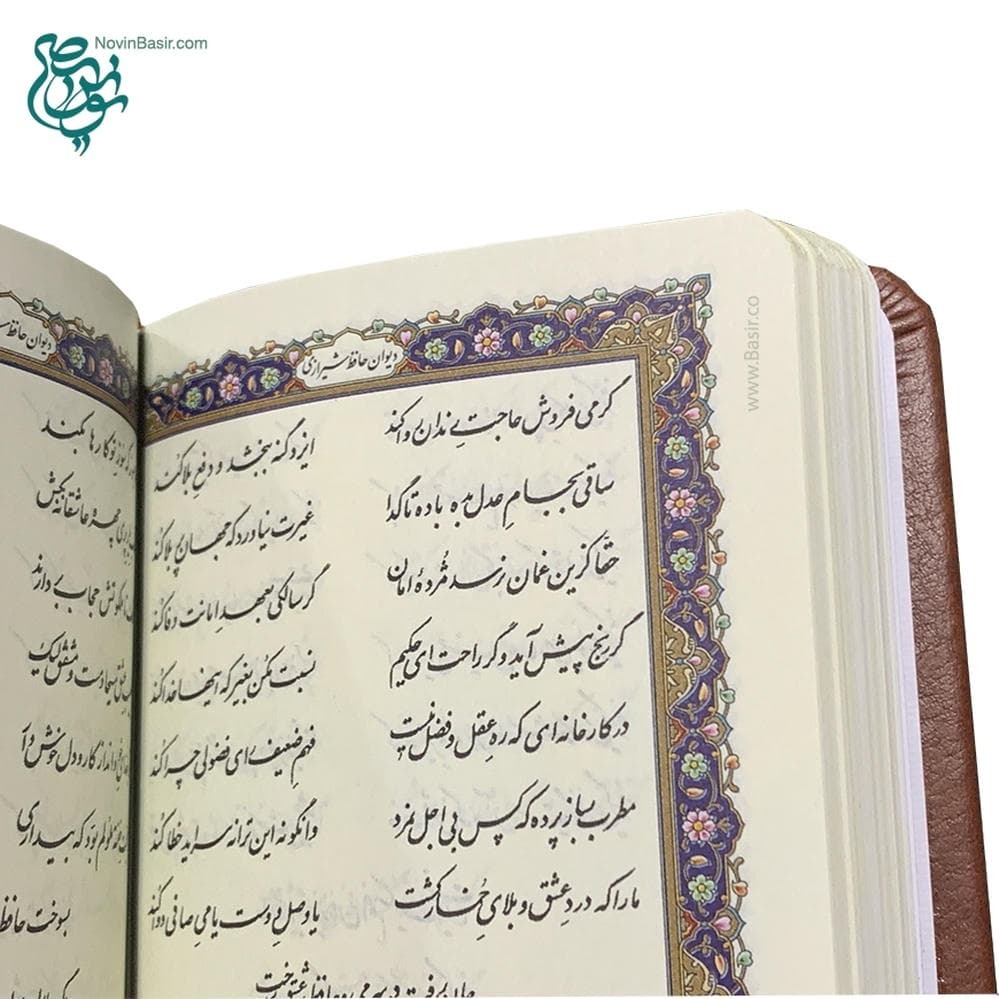 NovinBasir.com
www.Basir.co
دیوان حافظ شیرازی
گر می فروش حاجت رندان روا کند ایزد گنه ببخشد و دفعِ بلا کند
ساقی بجامِ عدل بده باده تا گدا غیرت نیاورد که جهان پر بلا کند
حقّا کزین غمان برسد مُژدهٔ امان گر سالکی بعهدِ امانت وفا کند
گر رنج پیش آید و گر راحت ای حکیم نسبت مکن بغیر که اینها خدا کند
در کارخانه ای که ره عقل و فضل نیست فهمِ ضعیف رای فضولی چرا کند
مطرب بساز پرده که کس بی اجل نمرد وانگونه این ترانه سراید خطا کند
ما را که دردِ عشق و بلای خُمار کشت یا وصلِ دوست یا میِ صافی دوا کند
دیوان حافظ
کارها بکند
عاشقانه بکش
دارند
مشفق لیک
کار و دل خوش
بود که بیداری
بسوخت حافظ